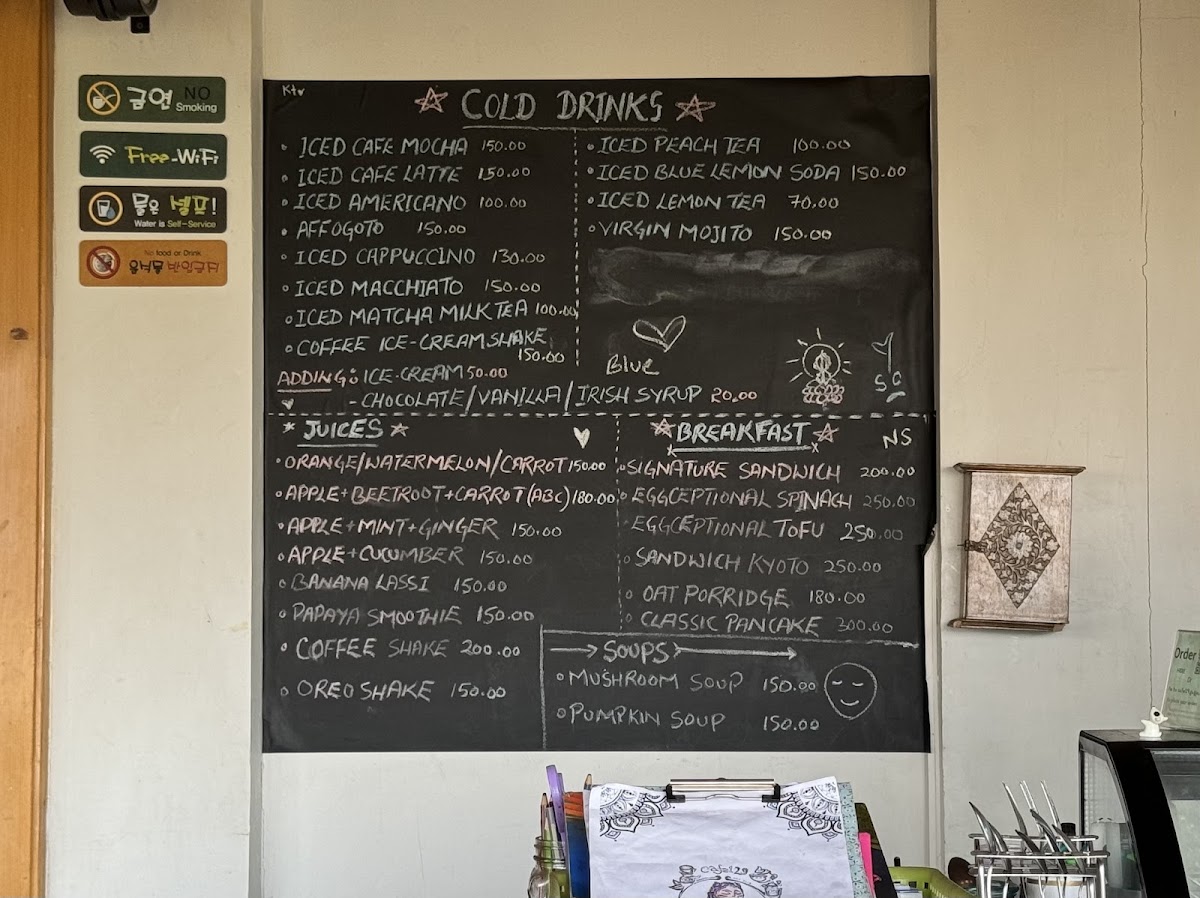 금연 NO
Smoking
Free-WiFi
물은 셀프!
Water is Self-Service
No food or Drink
음식물 반입금지
COLD DRINKS
• ICED CAFE MOCHA 150.00
• ICED CAFE LATTE 150.00
• ICED AMERICANO 100.00
• AFFOGOTO 150.00
• ICED CAPPUCCINO 130.00
• ICED MACCHIATO 150.00
• ICED MATCHA MILK TEA 100.00
• COFFEE ICE-CREAM SHAKE
150.00
• ICED PEACH TEA 100.00
• ICED BLUE LEMON SODA 150.00
• ICED LEMON TEA 70.00
• VIRGIN MOJITO 150.00
Blue
$
SC
ADDING: ICE-CREAM 50.00
- CHOCOLATE/VANILLA/IRISH SYRUP 20.00
JUICES
• ORANGE/WATERMELON/CARROT 150.00
• APPLE+BEETROOT+CARROT (ABC) 180.00
• APPLE+MINT+GINGER 150.00
• APPLE+CUCUMBER 150.00
• BANANA LASSI 150.00
• PAPAYA SMOOTHIE 150.00
• COFFEE SHAKE 200.00
• OREO SHAKE 150.00
BREAKFAST NS
• SIGNATURE SANDWICH 200.00
• EGGCEPTIONAL SPINACH 250.00
• EGGCEPTIONAL TOFU 250.00
• SANDWICH KYOTO 250.00
• OAT PORRIDGE 180.00
• CLASSIC PANCAKE 300.00
SOUPS
• MUSHROOM SOUP 150.00
• PUMPKIN SOUP 150.00
Order